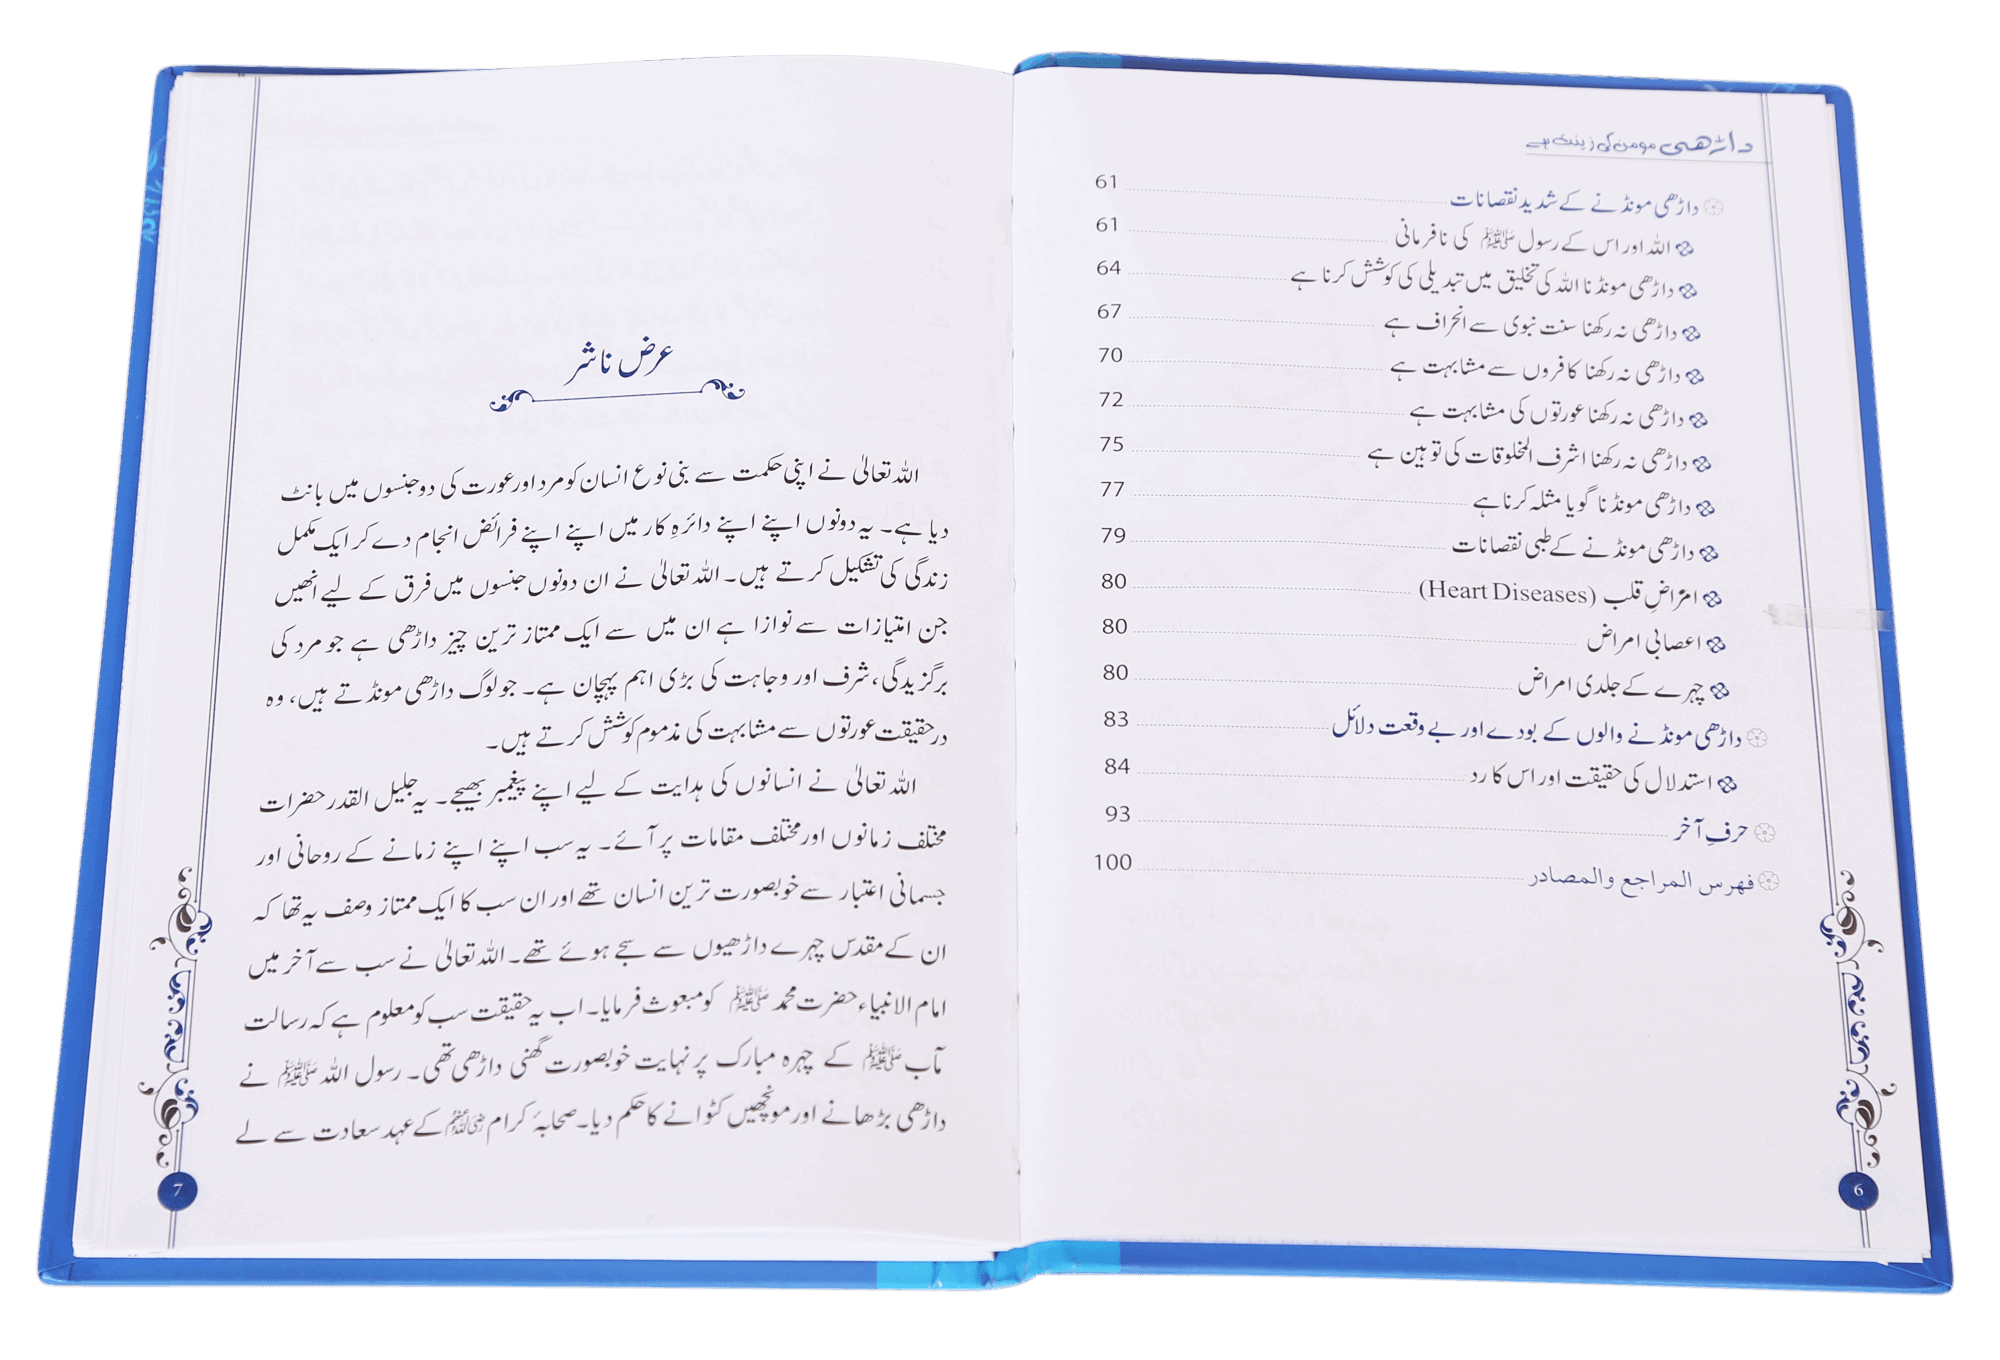 داڑھی مومن کی زینت ہے
داڑھی مونڈنے کے شدید نقصانات 61
اللہ اور اس کے رسول ﷺ کی نافرمانی 61
داڑھی مونڈنا اللہ کی تخلیق میں تبدیلی کی کوشش کرنا ہے 64
داڑھی نہ رکھنا سنت نبوی سے انحراف ہے 67
داڑھی نہ رکھنا کافروں سے مشابہت ہے 70
داڑھی نہ رکھنا عورتوں کی مشابہت ہے 72
داڑھی نہ رکھنا اشرف المخلوقات کی توہین ہے 75
داڑھی مونڈنا گویا مثلہ کرنا ہے 77
داڑھی مونڈنے کے طبی نقصانات 79
امراضِ قلب (Heart Diseases) 80
اعصابی امراض 80
چہرے کے جلدی امراض 80
داڑھی مونڈنے والوں کے بودے اور بے وقعت دلائل 83
استدلال کی حقیقت اور اس کا رد 84
حرفِ آخر 93
فہرس المراجع والمصادر 100
6
عرض ناشر
اللہ تعالیٰ نے اپنی حکمت سے بنی نوع انسان کو مرد اور عورت کی دو جنسوں میں بانٹ
دیا ہے۔ یہ دونوں اپنے اپنے دائرہِ کار میں اپنے اپنے فرائض انجام دے کر ایک مکمل
زندگی کی تشکیل کرتے ہیں۔ اللہ تعالیٰ نے ان دونوں جنسوں میں فرق کے لیے انھیں
جن امتیازات سے نوازا ہے ان میں سے ایک ممتاز ترین چیز داڑھی ہے جو مرد کی
برگزیدگی، شرف اور وجاہت کی بڑی اہم پہچان ہے۔ جو لوگ داڑھی مونڈتے ہیں، وہ
در حقیقت عورتوں سے مشابہت کی مذموم کوشش کرتے ہیں۔
اللہ تعالیٰ نے انسانوں کی ہدایت کے لیے اپنے پیغمبر بھیجے۔ یہ جلیل القدر حضرات
مختلف زمانوں اور مختلف مقامات پر آئے۔ یہ سب اپنے اپنے زمانے کے روحانی اور
جسمانی اعتبار سے خوبصورت ترین انسان تھے اور ان سب کا ایک ممتاز وصف یہ تھا کہ
ان کے مقدس چہرے داڑھیوں سے سجے ہوئے تھے۔ اللہ تعالیٰ نے سب سے آخر میں
امام الانبیاء حضرت محمد ﷺ کو مبعوث فرمایا۔ اب یہ حقیقت سب کو معلوم ہے کہ رسالت
مآب ﷺ کے چہرہ مبارک پر نہایت خوبصورت گھنی داڑھی تھی۔ رسول اللہ ﷺ نے
داڑھی بڑھانے اور مونچھیں کٹوانے کا حکم دیا۔ صحابۂ کرام رضی اللہ عنہم کے عہد سعادت سے لے
7